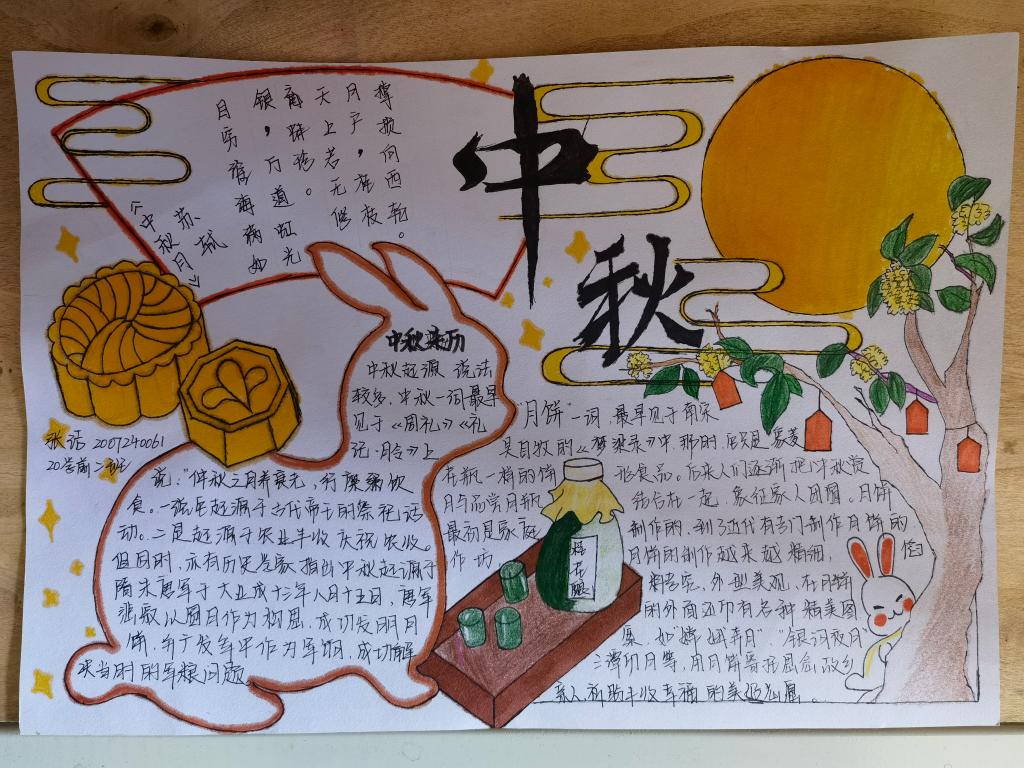 中秋
目穷淮海满如
银，万道虹光
育蚌珍。
天上若无修
月户桂枝
撑损向西轮。
苏轼
《中秋月》
中秋来历
中秋起源说法
较多，中秋一词最早
见于《周礼》《礼
记·月令》上
说："仲秋之月养衰老，行糜粥饮
食。一说它起源于古代帝王的祭祀活
动。二是起源于农业丰收庆祝农收。
但同时，亦有历史专家指出中秋起源于
隋末唐军于大业成十三年八月十五日，唐军
裴寂以圆月作为构思，成功发明月
饼，并广发军中作为军饷，成功解
决当时的军粮问题
2007240061
"月饼"一词，最早见于南宋
吴自牧的《梦梁录》中，那时，它只是象菱
花瓶一样的饼形食品。后来人们逐渐把中秋赏
月与品尝月饼结合在一起，象征家人团圆。月饼
最初是家庭制作的，到了近代有专门制作月饼的
作坊，月饼的制作越来越精细，
料考究，外型美观，在月饼
的外面还印有各种精美图
案，如"嫦娥奔月"，"银河夜月"
三潭印月等，用月饼寄托思念故乡
亲人祈盼丰收幸福
桂花酿